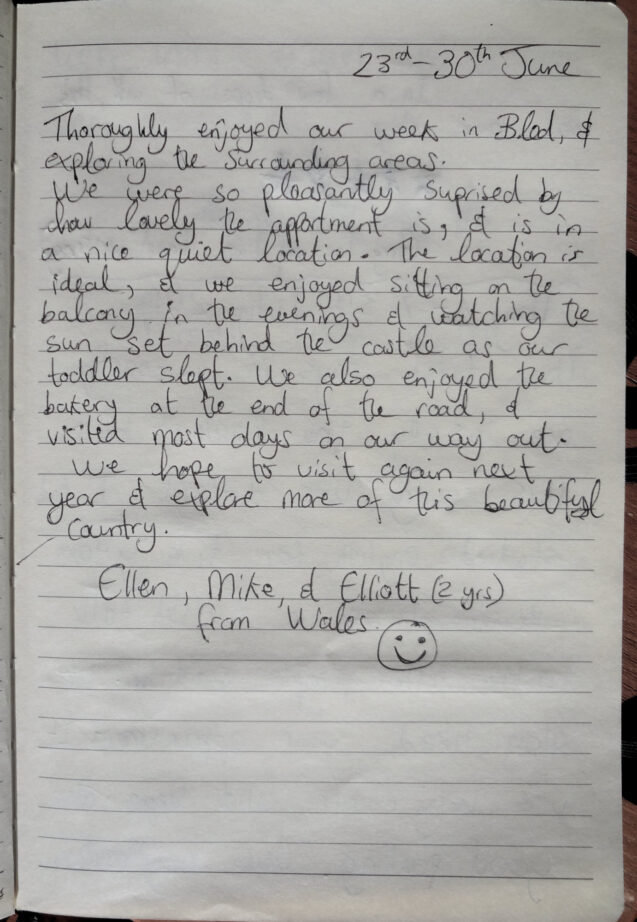 23rd - 30th June
Thoroughly enjoyed our week in Bled, &
exploring the surrounding areas.
We were so pleasantly suprised by
how lovely the appartment is, & is in
a nice quiet location. The location is
ideal, & we enjoyed sitting on the
balcony in the evenings & watching the
sun set behind the castle as our
toddler slept. We also enjoyed the
bakery at the end of the road, &
visited most days on our way out.
We hope to visit again next
year & explore more of this beautiful
country.
Ellen, Mike, & Elliott (2 yrs)
from Wales